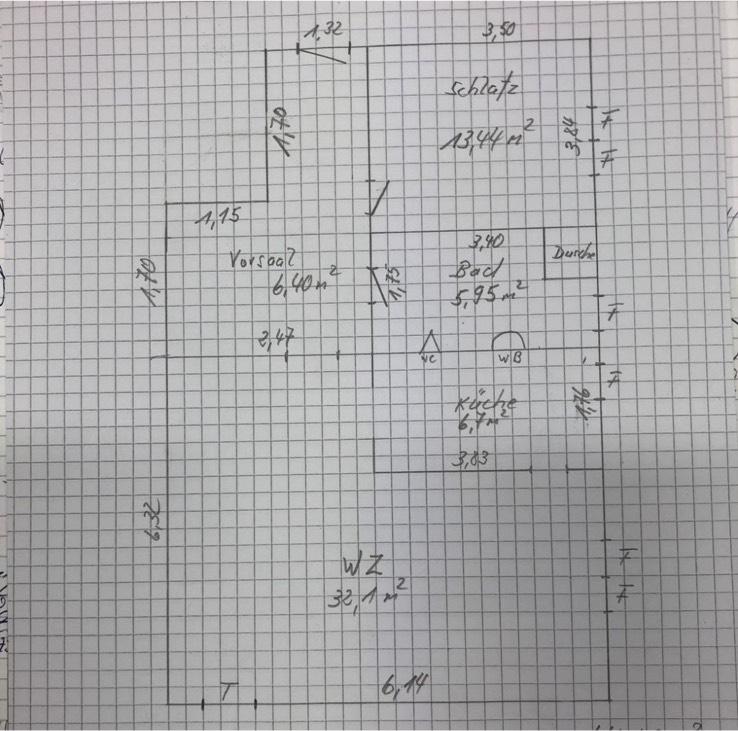 1,32
3,50
schlafz
13,44 m²
3,84
F
F
1,70
1,15
Vorsaal
6,40 m²
1,70
2,47
3,40
Bad
5,95 m²
1,75
Dusche
F
WC
WB
F
Küche
6,7 m²
1,76
3,83
6,32
WZ
32,1 m²
F
F
T
6,14